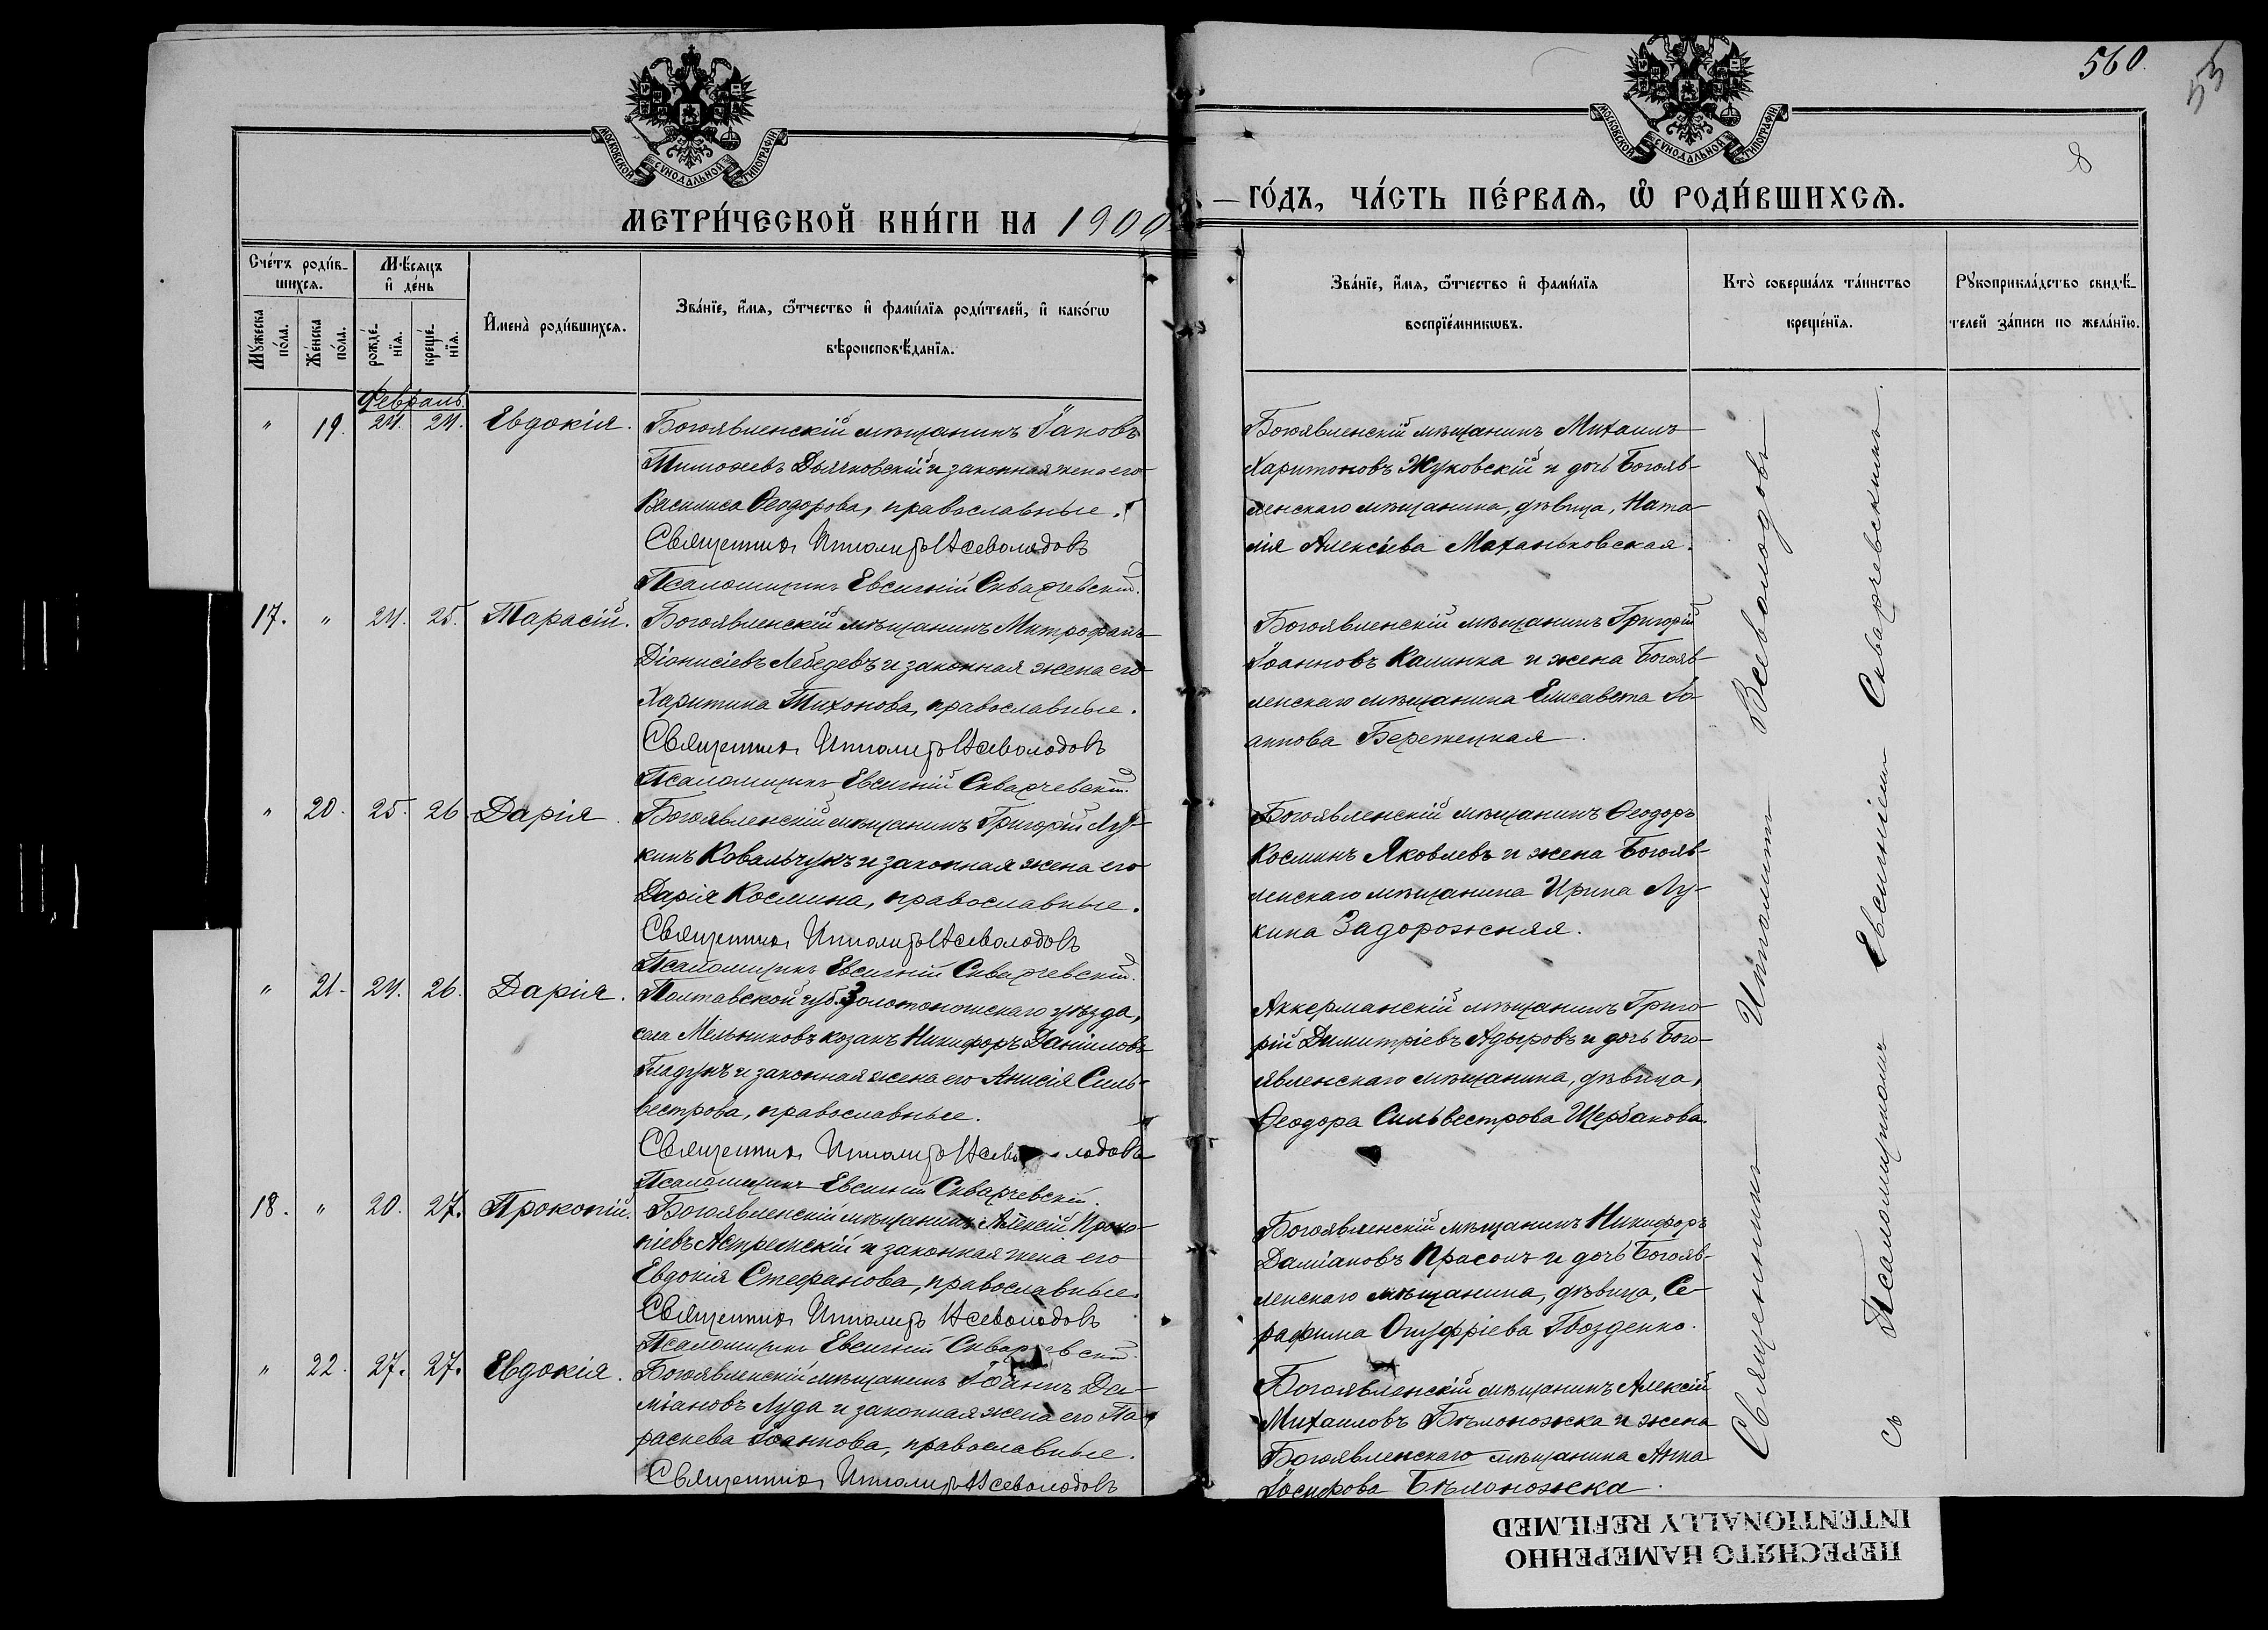 560.
55
8
МОСКОВСКОЙ СѴНОДАЛЬНОЙ ТИПОГРАФІИ
МОСКОВСКОЙ СѴНОДАЛЬНОЙ ТИПОГРАФІИ
МЕТРИ́ЧЕСКОЙ КНИ́ГИ НА 1900
ГО́ДЪ, ЧА́СТЬ ПЕ́РВАѦ, Ѽ РОДИ́ВШИХСѦ.
Сче́тъ роди́в-
шихсѧ.
Мѣ́сѧцъ
и҆ де́нь
Мꙋ́жеска по́ла.
Же́нска по́ла.
рожде́-
нїѧ.
креще́-
нїѧ.
И҆мена̀ роди́вшихсѧ.
Зва́нїе, и҆́мѧ, ѻ҆́тчество и҆ фами́лїѧ роди́телей, и҆ како́гѡ
вѣроисповѣ́данїѧ.
Зва́нїе, и҆́мѧ, ѻ҆́тчество и҆ фами́лїѧ
воспрїе́мникѡвъ.
Кто̀ соверша́лъ та́инство
креще́нїѧ.
Рꙋкоприкла́дство свидѣ́-
телей за́писи по жела́нїю.
Февраль.
" 19. 24. 24. Евдокія. Богоявленскій мѣщанинъ Іаковъ
Тимоѳеевъ Дьячковскій и законная жена его
Василиса Ѳеодорова, православные.
Священникъ Ипполитъ Всеволодовъ
Псаломщикъ Евсигній Скварчевскій.
Богоявленскій мѣщанинъ Михаилъ
Харитоновъ Жуковскій и дочь Богояв-
ленскаго мѣщанина, дѣвица, Ната-
лія Алексѣева Маханьковская.
17. " 24. 25. Тарасій. Богоявленскій мѣщанинъ Митрофанъ
Діонисіевъ Лебедевъ и законная жена его
Харитина Тихонова, православные.
Священникъ Ипполитъ Всеволодовъ
Псаломщикъ Евсигній Скварчевскій.
Богоявленскій мѣщанинъ Григорій
Іоанновъ Калинка и жена Богояв-
ленскаго мѣщанина Елисавета Іо-
аннова Бережецкая.
" 20. 25. 26. Дарія. Богоявленскій мѣщанинъ Григорій Лу-
кинъ Ковальчукъ и законная жена его
Дарія Космина, православные.
Священникъ Ипполитъ Всеволодовъ
Псаломщикъ Евсигній Скварчевскій.
Богоявленскій мѣщанинъ Ѳеодоръ
Косминъ Яковлевъ и жена Богояв-
ленскаго мѣщанина Ирина Лу-
кина Задорожняя.
" 21. 24. 26. Дарія. Полтавской губ. Золотоношскаго уѣзда,
села Мельниковъ козакъ Никифоръ Даніиловъ
Гладунъ и законная жена его Анисія Силь-
вестрова, православные.
Священникъ Ипполитъ Всеволодовъ
Псаломщикъ Евсигній Скварчевскій.
Аккерманскій мѣщанинъ Григо-
рій Димитріевъ Адыровъ и дочь Бого-
явленскаго мѣщанина, дѣвица,
Ѳеодора Сильвестрова Щербакова.
18. " 20. 27. Прокопій. Богоявленскій мѣщанинъ Алексій Проко-
піевъ Астремскій и законная жена его
Евдокія Стефанова, православные.
Священникъ Ипполитъ Всеволодовъ
Псаломщикъ Евсигній Скварчевскій.
Богоявленскій мѣщанинъ Никифоръ
Даміановъ Прасолъ и дочь Богояв-
ленскаго мѣщанина, дѣвица, Се-
рафима Онуфріева Гвозденко.
" 22. 27. 27. Евдокія. Богоявленскій мѣщанинъ Іоаннъ Да-
міановъ Луда и законная жена его Па-
раскева Іоаннова, православные.
Священникъ Ипполитъ Всеволодовъ
Богоявленскій мѣщанинъ Алексій
Михаиловъ Бѣлоножка и жена
Богоявленскаго мѣщанина Анна
Іосифова Бѣлоножка.
Священникъ Ипполитъ Всеволодовъ
съ Псаломщикомъ Евсигніемъ Скварчевскимъ.
ПЕРЕСНЯТО НАМЕРЕННО
INTENTIONALLY REFILMED